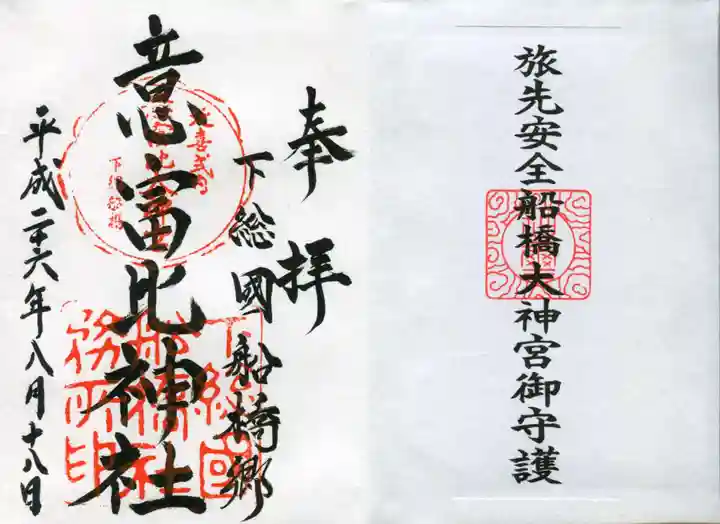 旅先安全船橋大神宮御守護
奉拝
下総國船橋郷
意富比神社
平成二十六年八月十八日
延喜式内
下総船橋